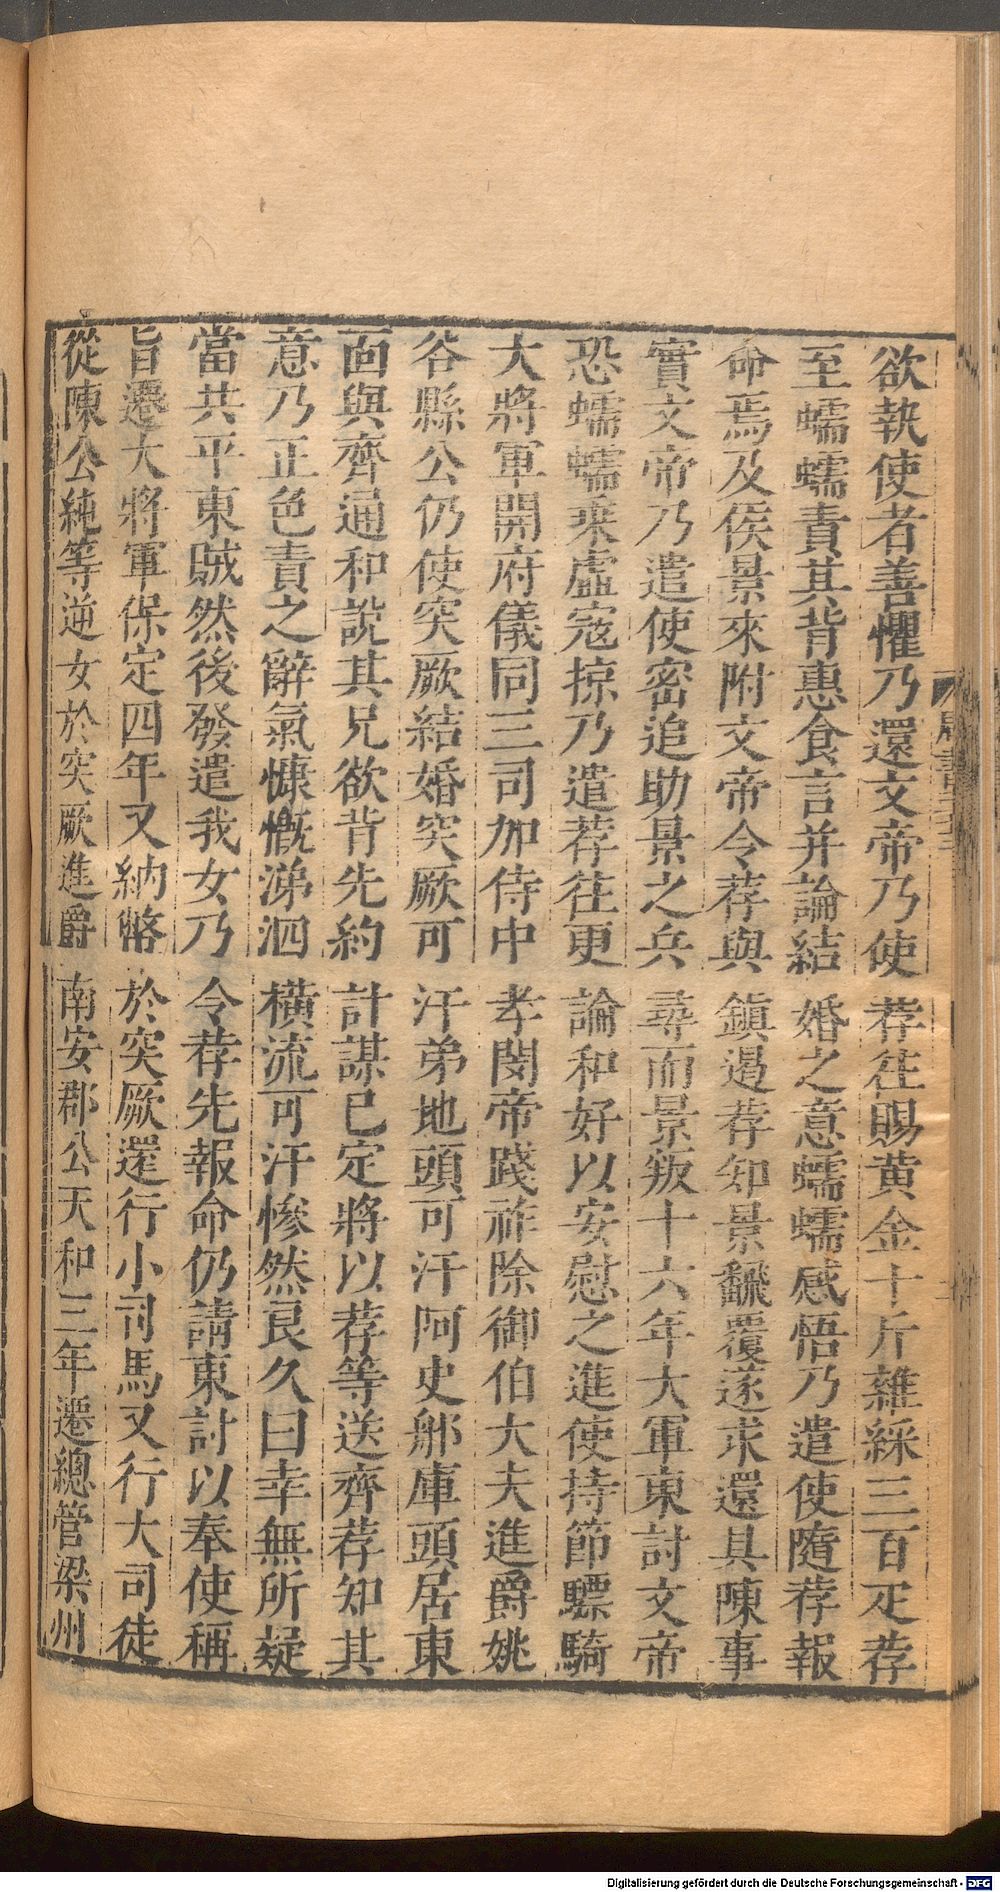 欲執使者善懼乃還文帝乃使荐往賜黄金十斤雜綵三百疋荐
至蠕蠕責其背惠食言并論結婚之意蠕蠕感悟乃遣使隨荐報
命焉及侯景來附文帝令荐與鎮遏荐知景飜覆遂求還具陳事
實文帝乃遣使密追助景之兵尋而景叛十六年大軍東討文帝
恐蠕蠕乘虛寇掠乃遣荐往更論和好以安慰之進使持節驃騎
大將軍開府儀同三司加侍中孝閔帝踐祚除御伯大夫進爵姚
谷縣公仍使突厥結婚突厥可汗弟地頭可汗阿史那庫頭居東
面與齊通和說其兄欲背先約計謀已定將以荐等送齊荐知其
意乃正色責之辭氣慷慨涕泗橫流可汗慘然良久曰幸無所疑
當共平東賊然後發遣我女乃令荐先報命仍請東討以奉使稱
旨遷大將軍保定四年又納幣於突厥還行小司馬又行大司徒
從陳公純等逆女於突厥進爵南安郡公天和三年遷總管梁州
Digitalisierung gefördert durch die Deutsche Forschungsgemeinschaft - DFG